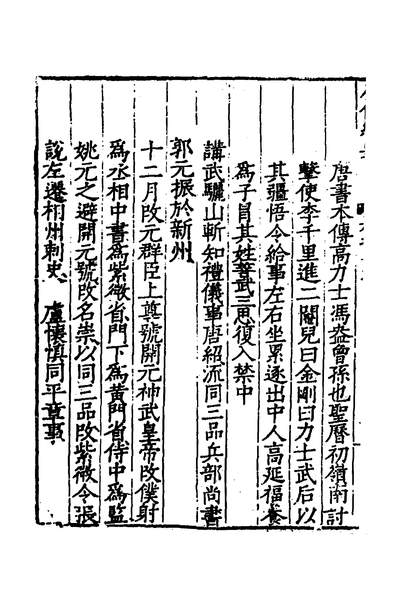 唐書本傳高力士馮盎曾孫也聖曆初嶺南討
擊使李千里進二閹兒曰金剛曰力士武后以
其彊悟令給事左右坐累逐出中人高延福養
為子冒其姓善武三思復入禁中
講武驪山斬知禮儀事唐紹流同三品兵部尚書
郭元振於新州
十二月改元群臣上尊號開元神武皇帝改僕射
為丞相中書為紫微省門下為黃門省侍中為監
姚元之避開元號改名崇以同三品改紫微令張
說左遷相州刺史 盧懷慎同平章事